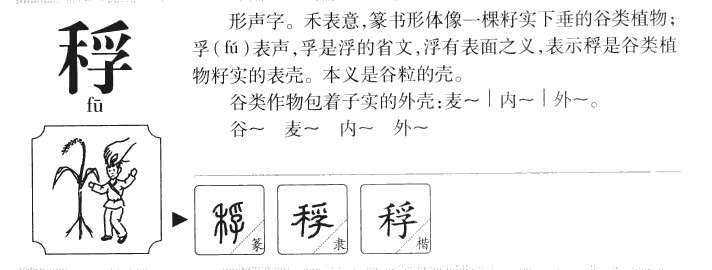 稃
fū
形声字。禾表意,篆书形体像一棵籽实下垂的谷类植物;
孚(fú)表声,孚是浮的省文,浮有表面之义,表示稃是谷类植
物籽实的表壳。本义是谷粒的壳。
谷类作物包着子实的外壳:麦~|内~|外~。
谷~ 麦~ 内~ 外~
稃 篆 稃 隶 稃 楷